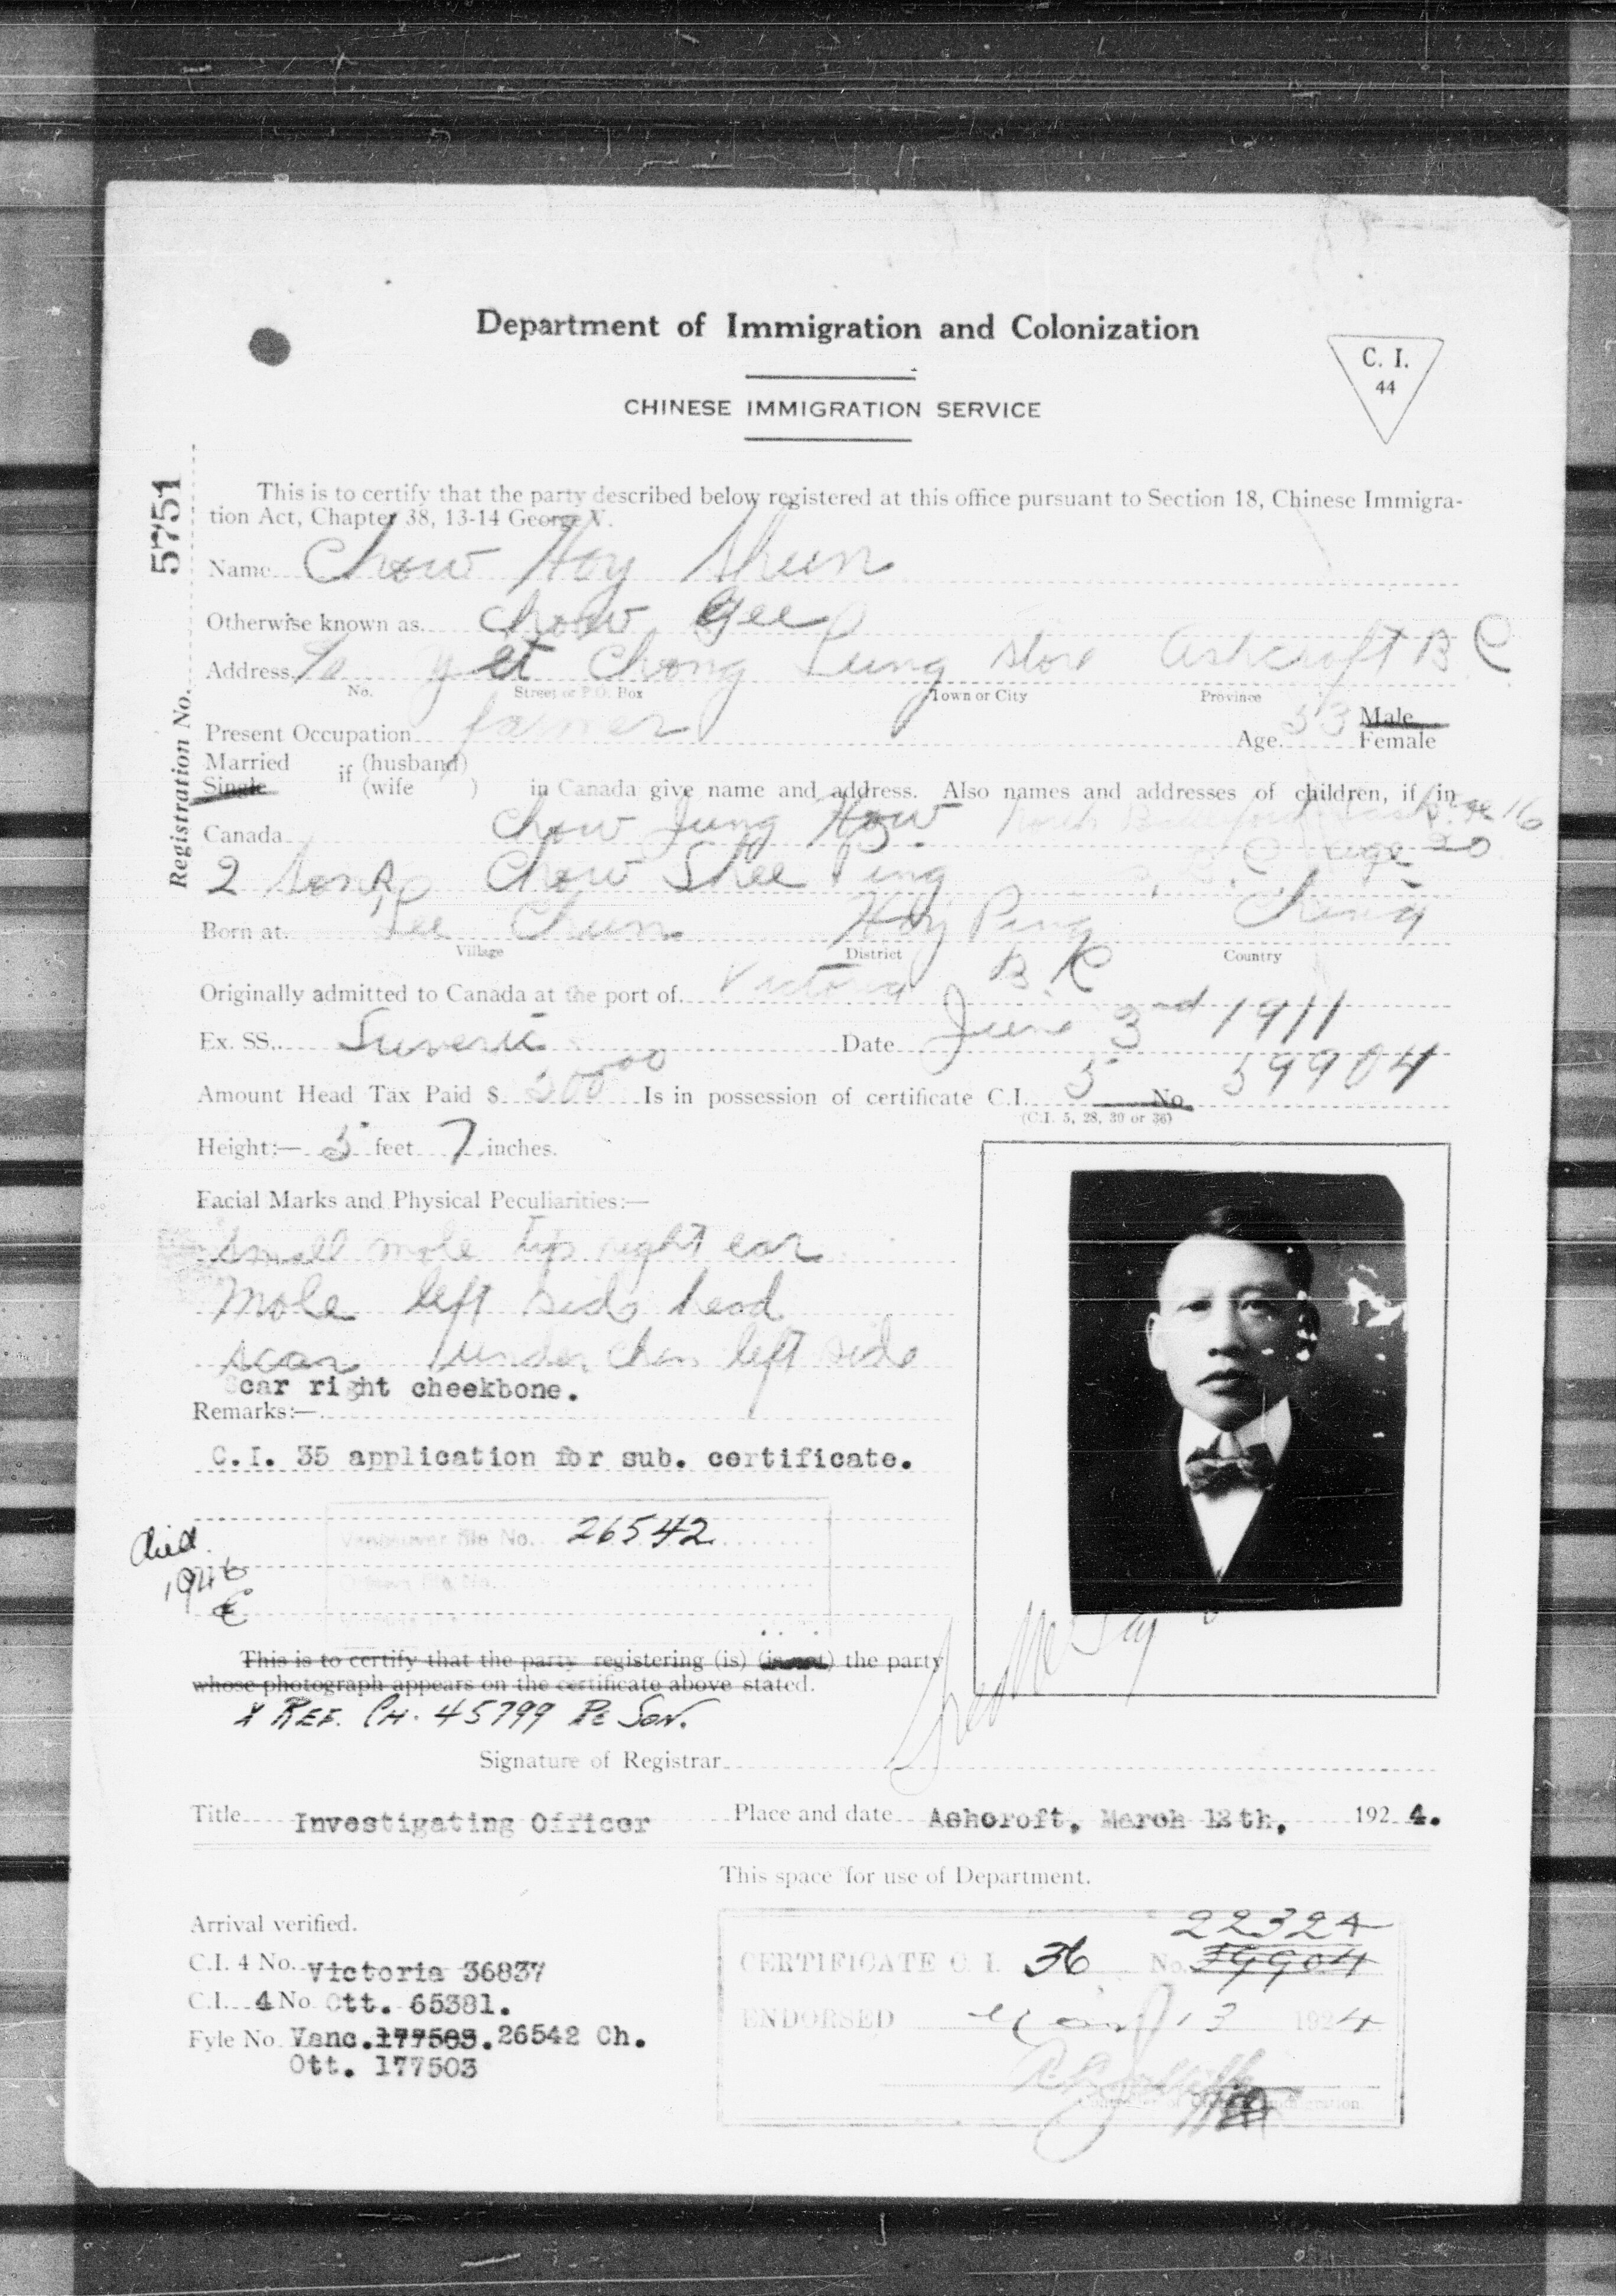 Department of Immigration and Colonization
CHINESE IMMIGRATION SERVICE
C. I.
44
5751
Registration No.
This is to certify that the party described below registered at this office pursuant to Section 18, Chinese Immigra-
tion Act, Chapter 38, 13-14 George V.
Name Chow Hoy Shun
Otherwise known as Chow Yee
Address Yet Chong Lung store Ashcroft B C
No. Street or P.O. Box Town or City Province
Present Occupation farmer Age 53 Male Female
Married Single if (husband) (wife ) in Canada give name and address. Also names and addresses of children, if in
Canada Chow Jung How North Battleford Sask. age 16
2 sons Chow Shee Ping B. C. age 20
Born at Lee Chun Hoy Ping China
Village District Country
Originally admitted to Canada at the port of Victoria B. C
Ex. SS. Suveric Date June 3rd 1911
Amount Head Tax Paid $ 500.00 Is in possession of certificate C.I. 5 No. 59904
(C.I. 5, 28, 30 or 36)
Height:— 5 feet 7 inches.
Facial Marks and Physical Peculiarities:—
small mole tip right ear
Mole left side head
scar under chin left side
Scar right cheekbone.
Remarks:—
C.I. 35 application for sub. certificate.
Vancouver file No. 26542
Ottawa file No.
died
1946
This is to certify that the party registering (is) (is not) the party
whose photograph appears on the certificate above stated.
X REF. CH. 45799 RE SON.
Signature of Registrar
Title Investigating Officer Place and date Ashcroft, March 12th, 1924.
This space for use of Department.
Arrival verified.
C.I. 4 No. Victoria 36837
C.I. 4 No. Ott. 65381.
Fyle No. Vanc. 177503. 26542 Ch.
Ott. 177503
22324
CERTIFICATE C. I. 36 No. 59904
ENDORSED 13 1924